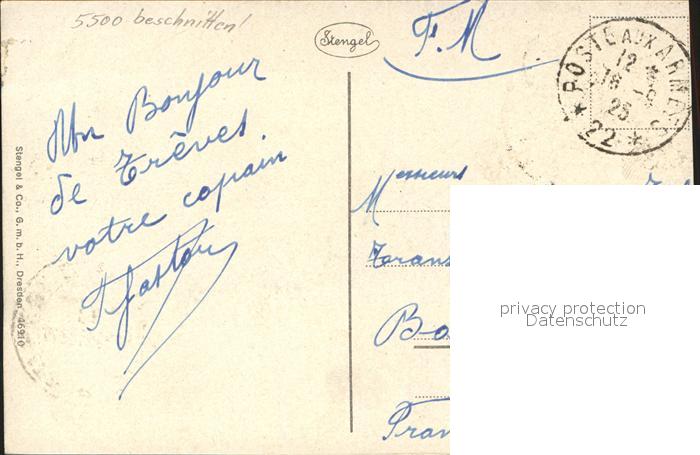 5500 beschnitten!
Stengel
F. M
POSTE AUX ARMÉES
12
18 -9
25
* 22 *
Un Bonjour
de Trèves.
votre copain
Messieurs
Stengel & Co., G. m. b. H., Dresden 46910
privacy protection
Datenschutz